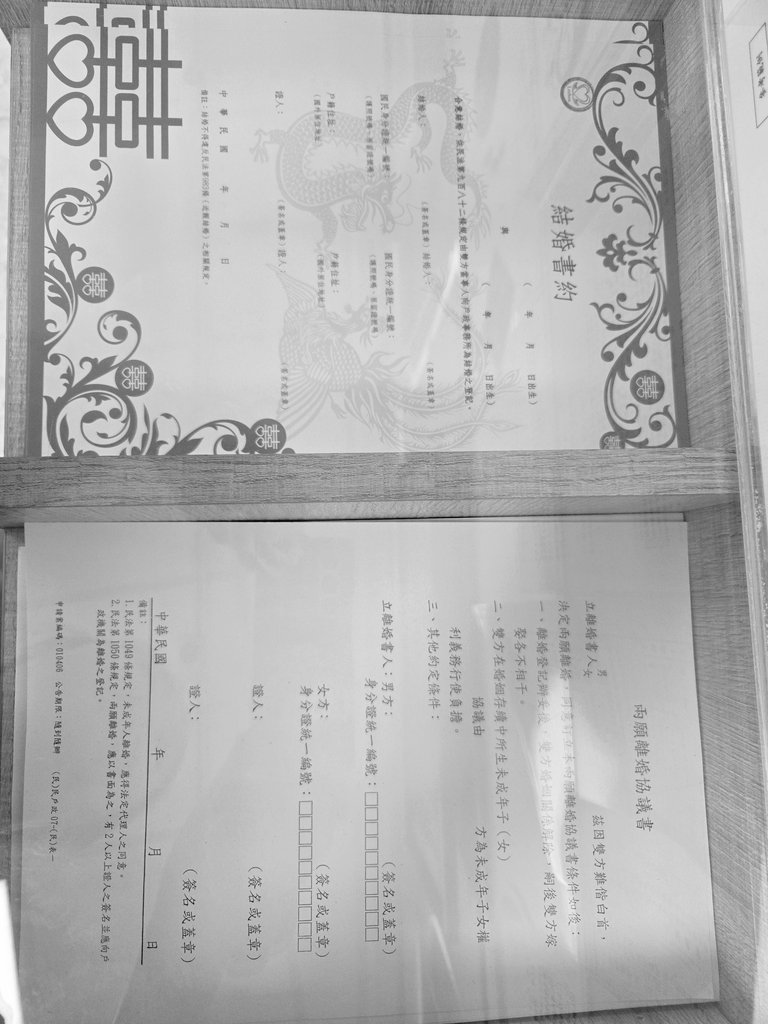 結婚書約
( 年 月 日出生)
與
( 年 月 日出生)
合意結婚，依民法第九百八十二條規定由雙方當事人向戶政事務所為結婚之登記。
結婚人： (簽名或蓋章) 結婚人： (簽名或蓋章)
國民身分證統一編號： 國民身分證統一編號：
(護照號碼、居留證號碼) (護照號碼、居留證號碼)
戶籍住址： 戶籍住址：
(國外居住地址) (國外居住地址)
證人： (簽名或蓋章) 證人： (簽名或蓋章)
中華民國 年 月 日
備註：結婚不得違反民法第983條（近親結婚）之相關規定。
囍
囍
囍
囍
囍
囍
兩願離婚協議書
立離婚書人 男 女 茲因雙方難偕白首，
決定兩願離婚，同意訂立本兩願離婚協議書條件如後：
一、離婚登記辦妥後，雙方婚姻關係解除，嗣後雙方嫁
娶各不相干。
二、雙方在婚姻存續中所生未成年子（女）
協議由 方為未成年子女權
利義務行使負擔。
三、其他約定條件：
立離婚書人：男方： (簽名或蓋章)
身分證統一編號：□□□□□□□□□□
女方： (簽名或蓋章)
身分證統一編號：□□□□□□□□□□
證人： (簽名或蓋章)
證人： (簽名或蓋章)
中華民國 年 月 日
備註：
1.民法第1049條規定，未成年人離婚，應得法定代理人之同意。
2.民法第1050條規定，兩願離婚，應以書面為之，有2人以上證人之簽名並應向戶
政機關為離婚之登記。
申請書編碼：010406 公告期限：隨到隨辦 (民)民戶政 07-(民)表一